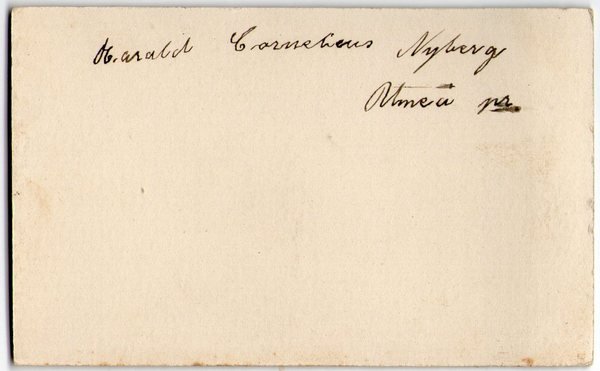 Harald Cornelius Nyberg
Umeå pr.